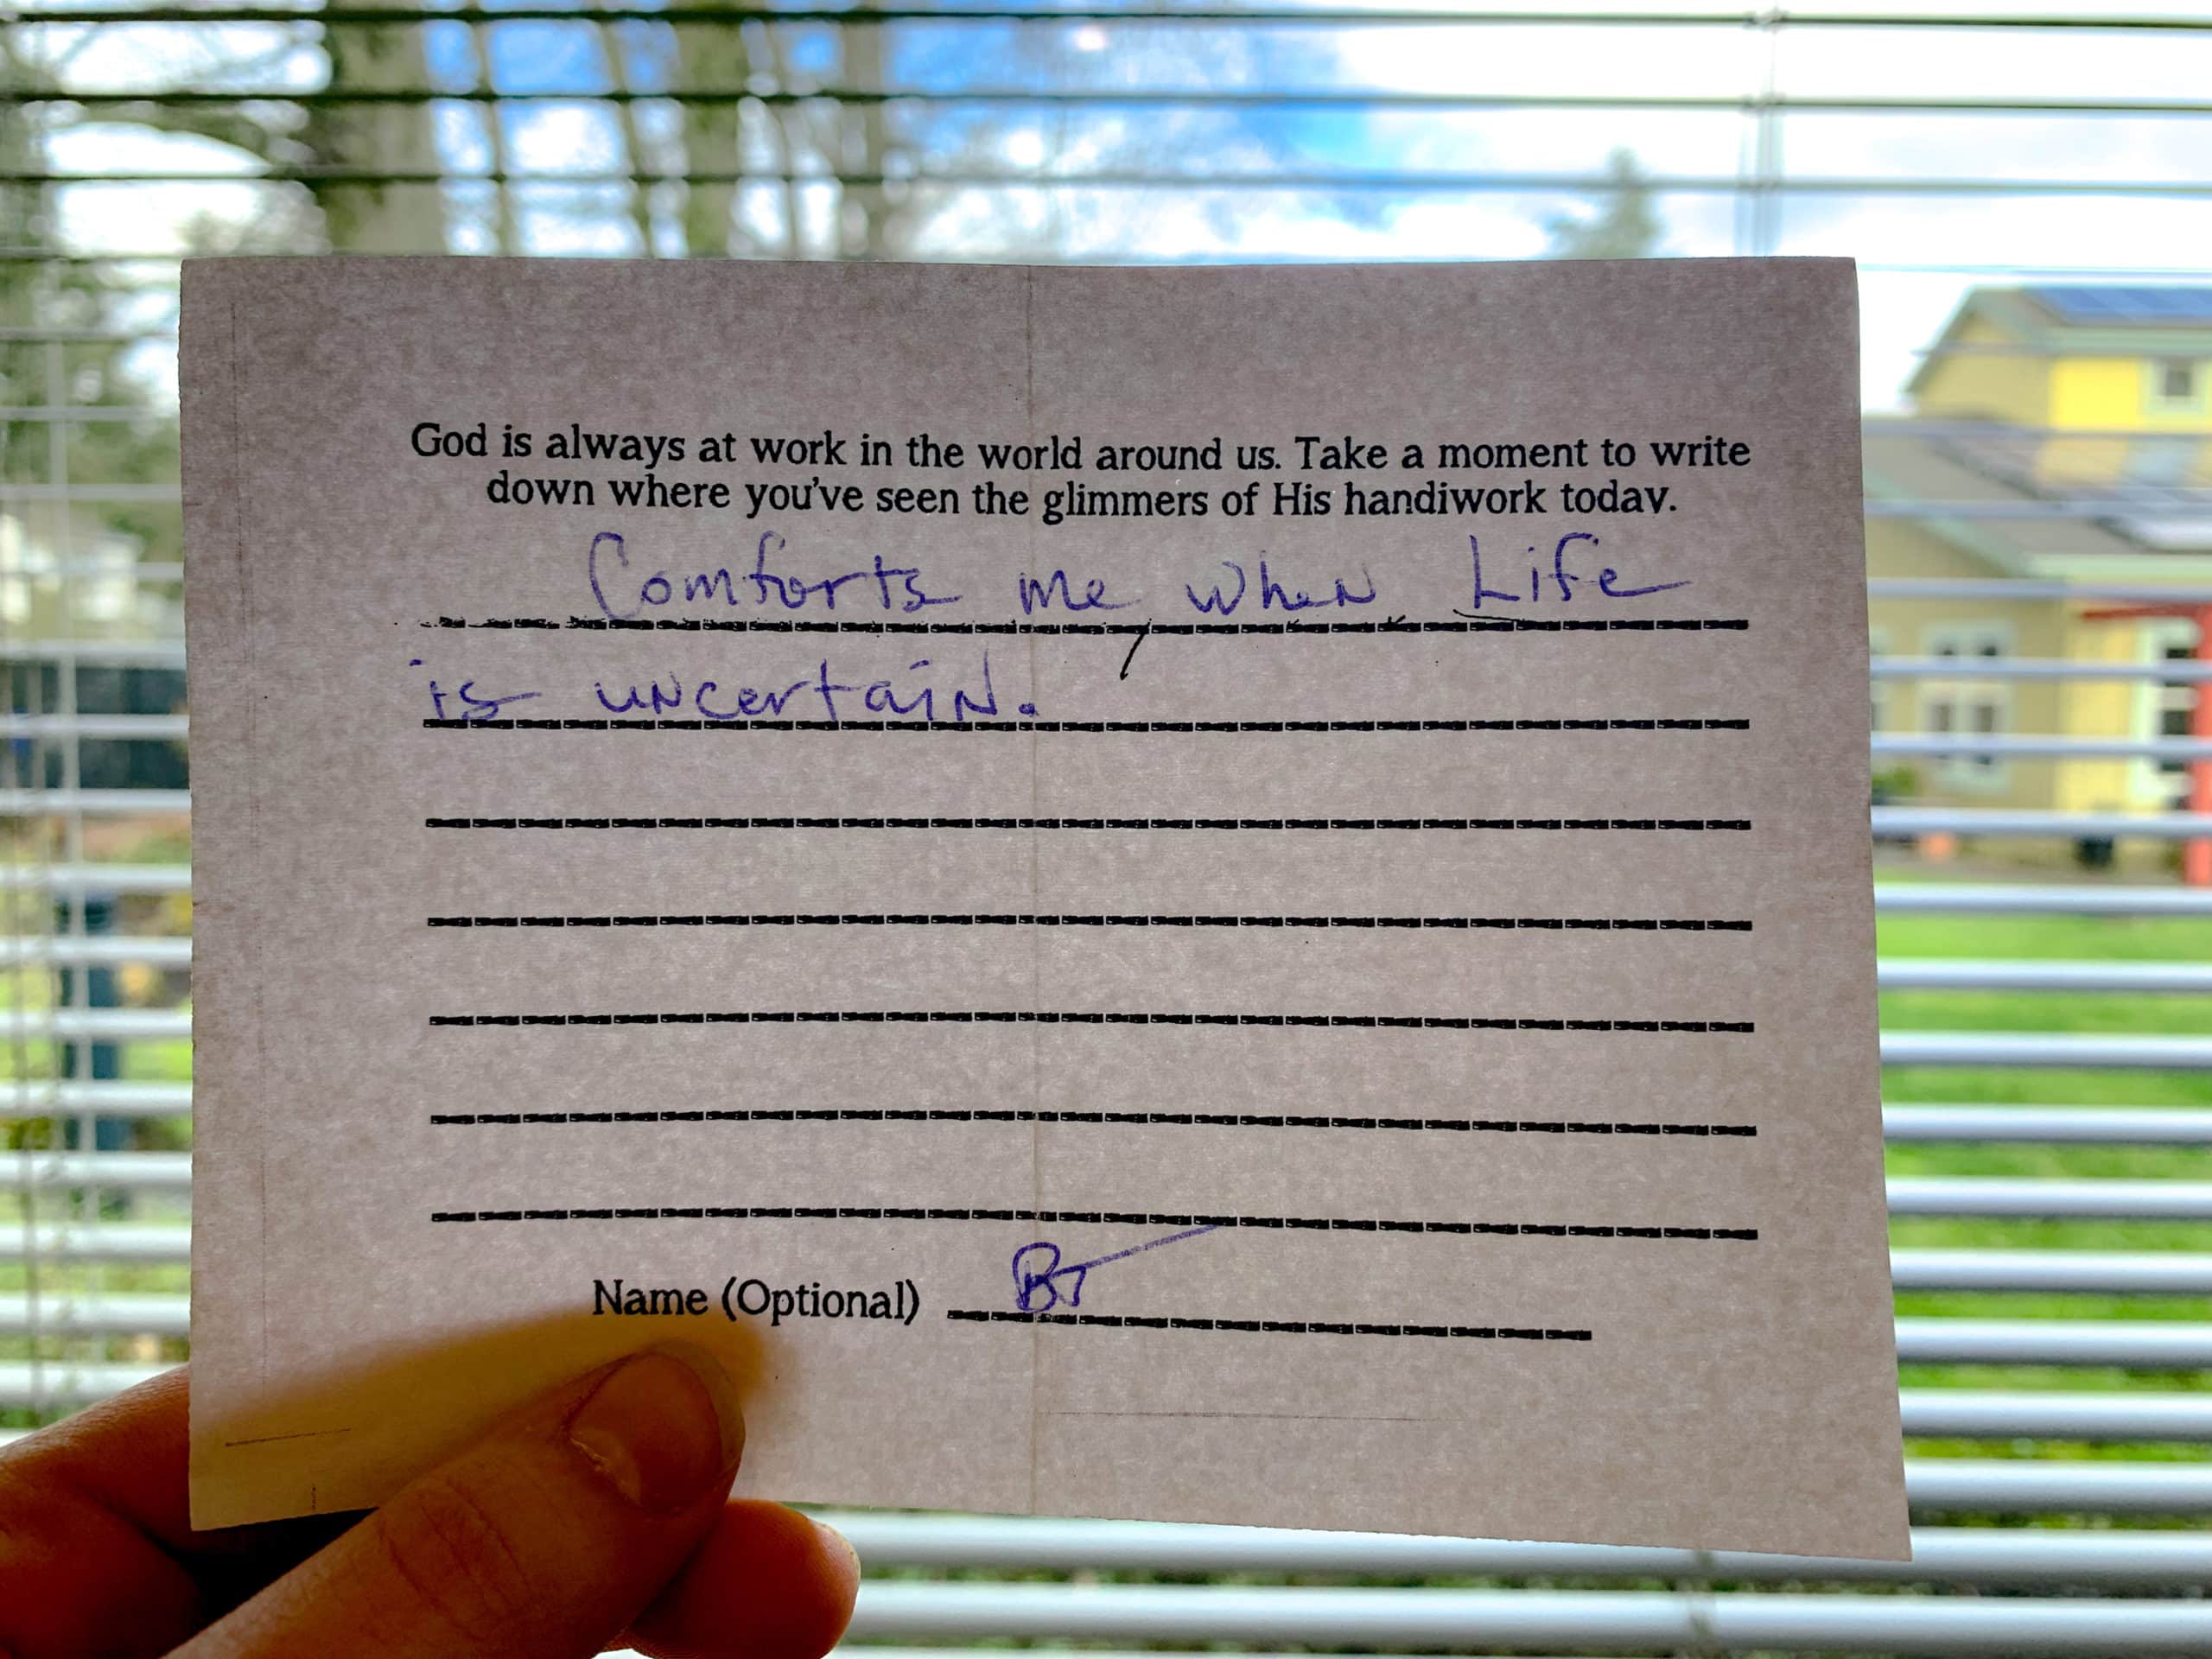 God is always at work in the world around us. Take a moment to write
down where you've seen the glimmers of His handiwork today.
Comforts me when Life
is uncertain.
Name (Optional) BT